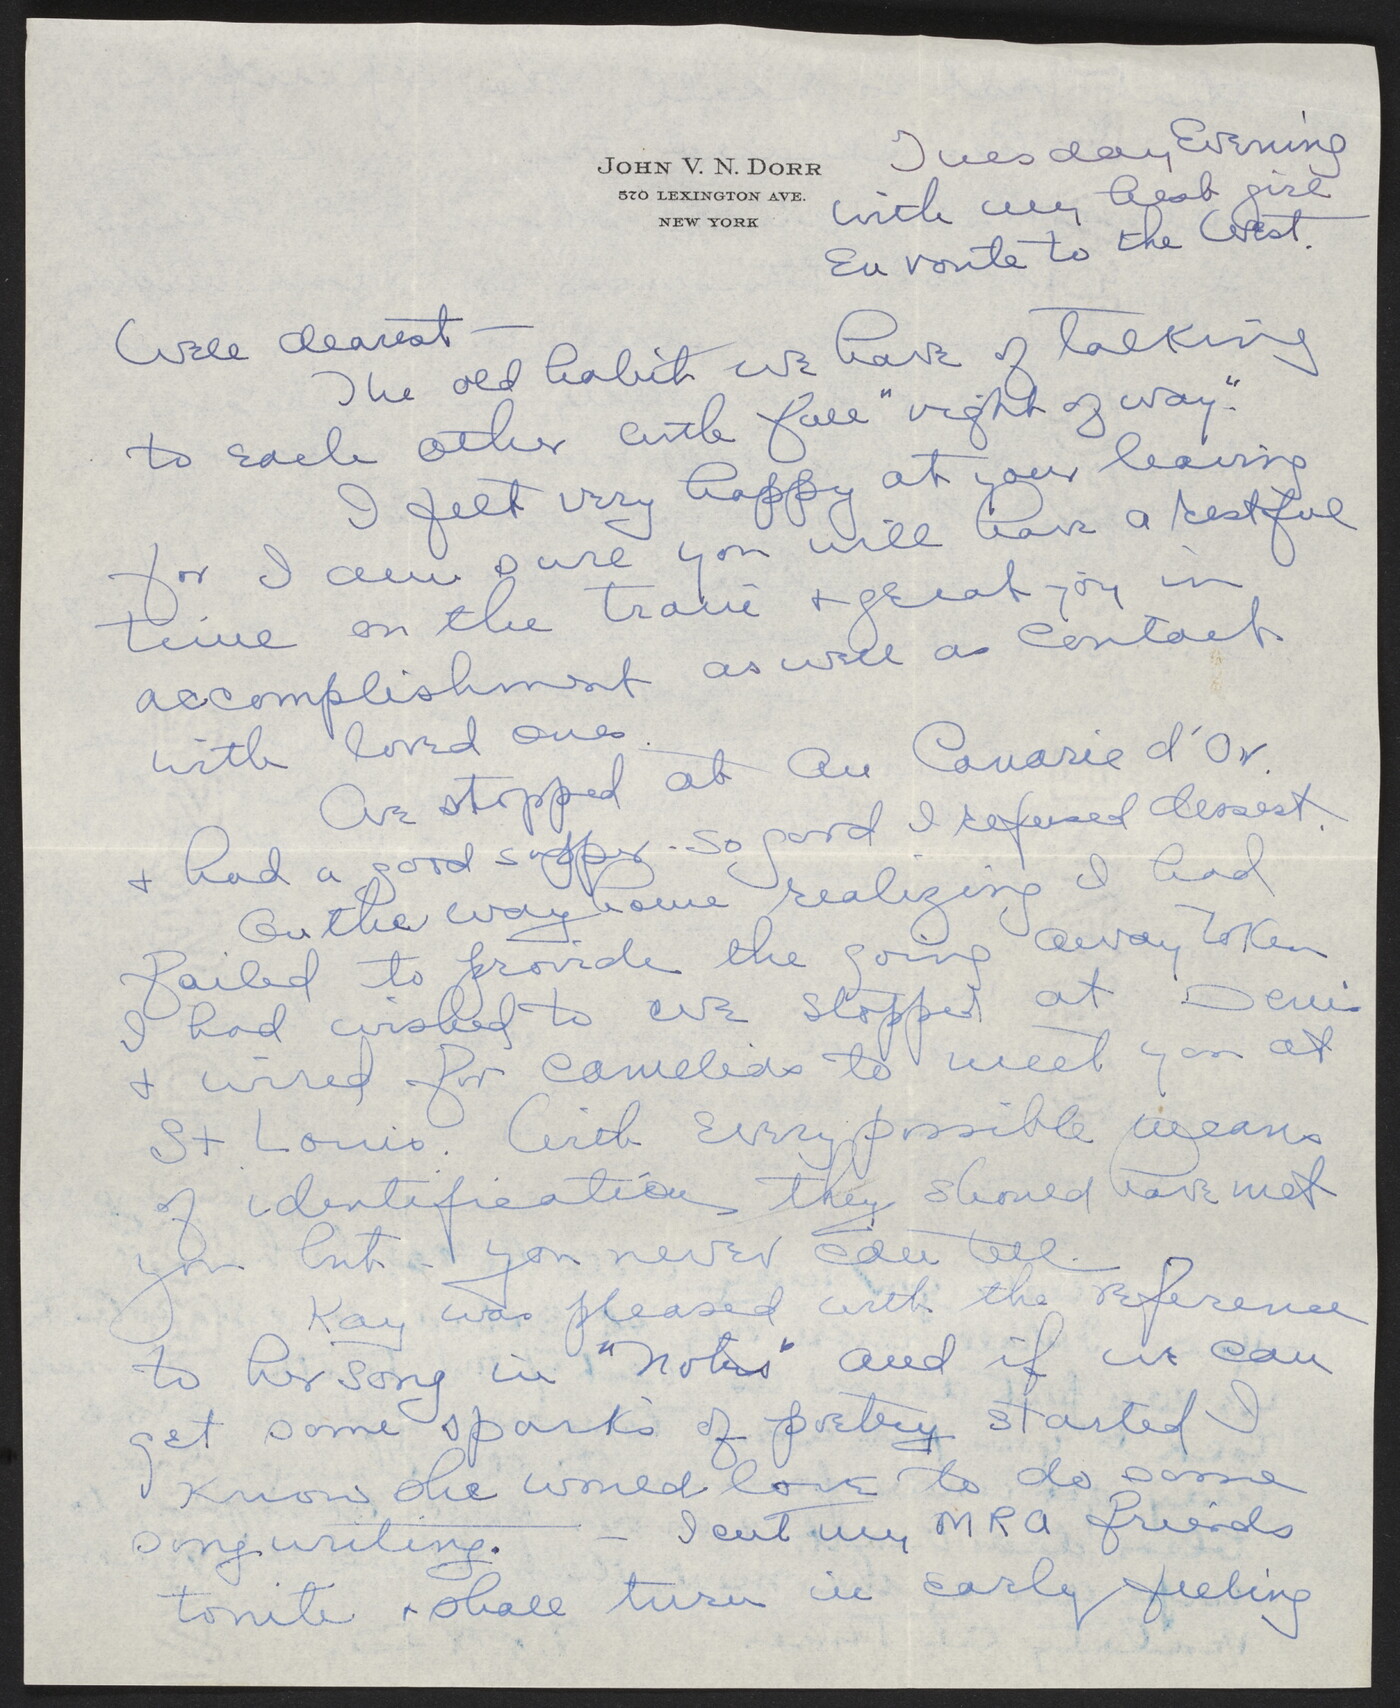 JOHN V. N. DORR
570 LEXINGTON AVE.
NEW YORK
Tuesday Evening
with my best girl
En route to the West.
Well dearest —
The old habit we have of talking
to each other with full "right of way".
I felt very happy at your leaving
for I am sure you will have a restful
time on the train & great joy in
accomplishment as well as contact
with loved ones.
We stopped at Au Canarie d'Or.
& had a good supper - so good I refused dessert.
On the way home realizing I had
failed to provide the going away token
I had wished to we stopped at
& wired for camelias to meet you at
St Louis. With every possible means
of identification they should have met
you but - you never can tell.
Kay was pleased with the reference
to her song in "Notes" and if we can
get some sparks of poetry started I
know she would love to do some
song writing. — I cut my MRA friends
tonite & shall turn in early feeling